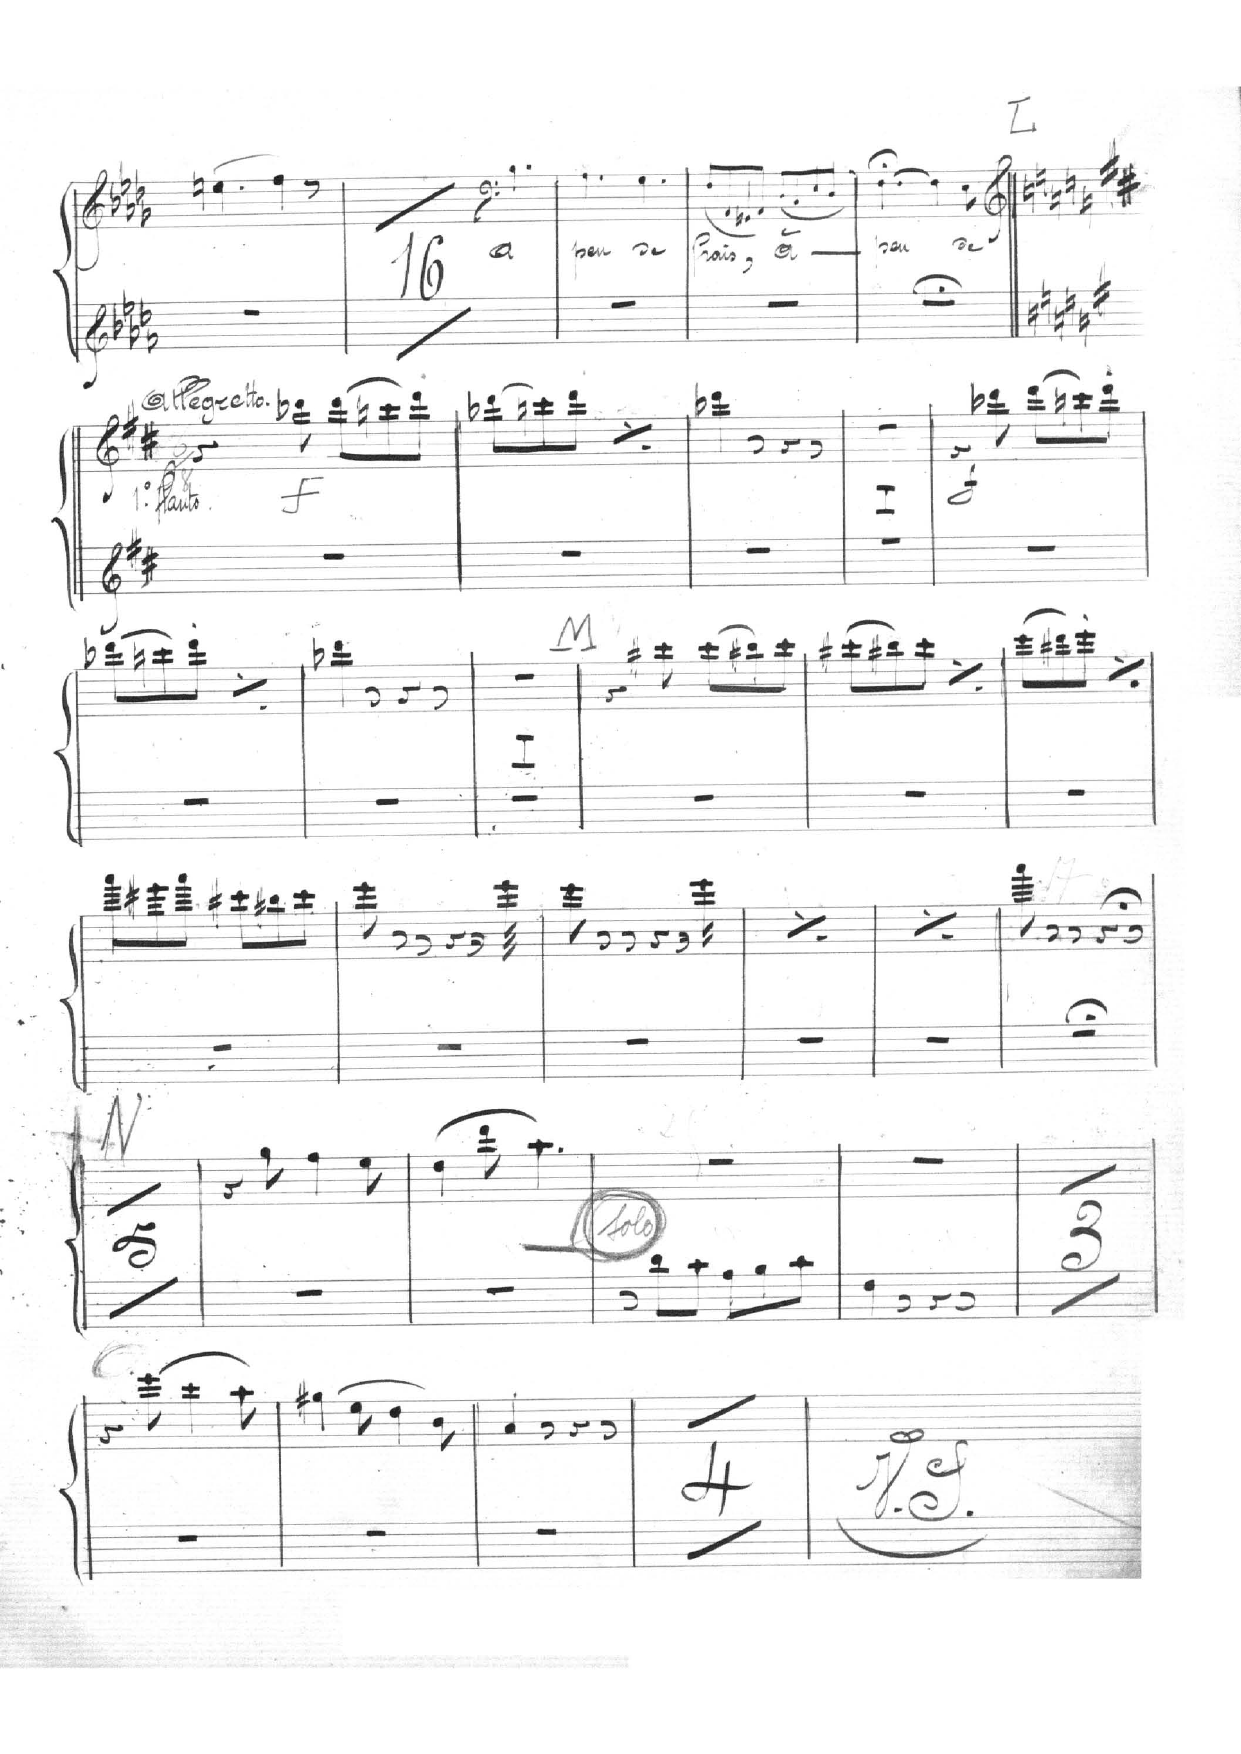 L
16 a peu de frais, a peu de
Allegretto.
1º flauto. F
M
N
5 Solo 3
4 V.S.